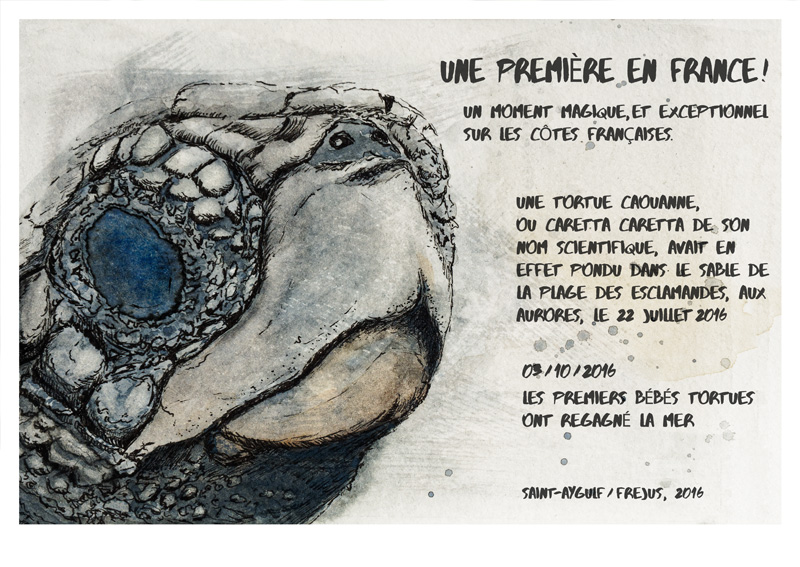 UNE PREMIÈRE EN FRANCE!
UN MOMENT MAGIQUE, ET EXCEPTIONNEL
SUR LES CÔTES FRANÇAISES.
UNE TORTUE CAOUANNE,
OU CARETTA CARETTA DE SON
NOM SCIENTIFIQUE, AVAIT EN
EFFET PONDU DANS LE SABLE DE
LA PLAGE DES ESCLAMANDES, AUX
AURORES, LE 22 JUILLET 2016
03/10/2016
LES PREMIERS BÉBÉS TORTUES
ONT REGAGNÉ LA MER
SAINT-AYGULF/FREJUS, 2016